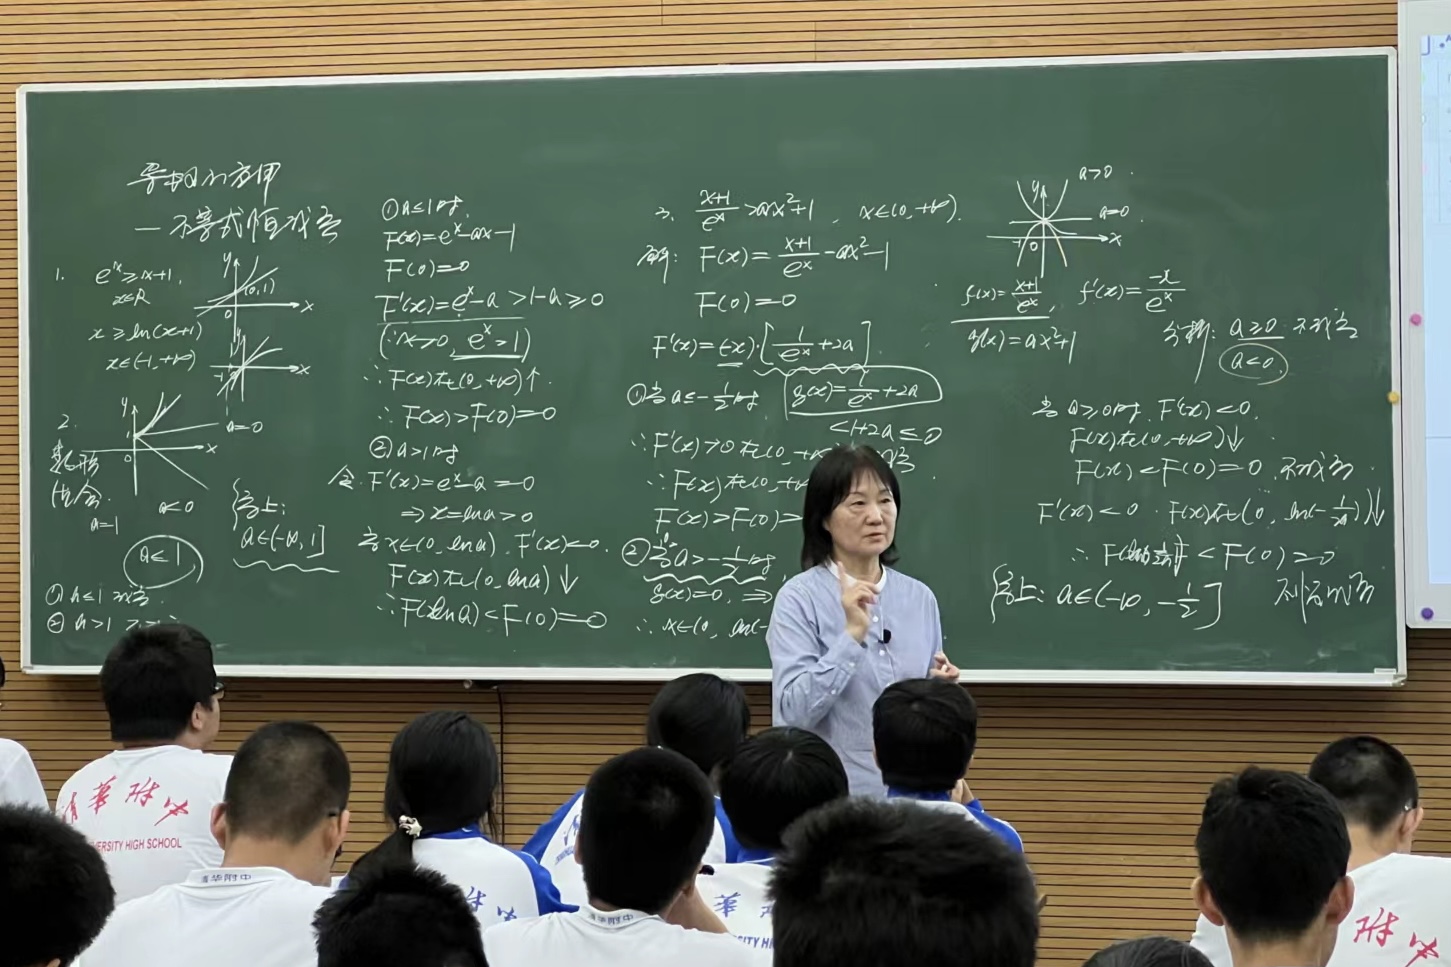 导数的应用
— 不等式恒成立
1. eˣ ≥ x+1,
x∈R
x ≥ ln(x+1)
x∈(-1,+∞)
y
(0,1)
0
x
y
-1
0
x
2.
y
1
0
x
a=0
a<0
a=1
a≤1
综上:
a∈(-∞, 1]
① a≤1
② a>1
① a≤1时,
F(x)=eˣ-ax-1
F(0)=0
F'(x)=eˣ-a >1-a≥0
(∵x>0, eˣ>1)
∴F(x)在(0,+∞)↑
∴F(x)>F(0)=0
② a>1时
令F'(x)=eˣ-a=0
⇒x=lna>0
当x∈(0,lna), F'(x)<0.
F(x)在(0,lna)↓
∴F(lna)<F(0)=0
3. (x+1)/eˣ >ax²+1, x∈(0,+∞).
解: F(x)=(x+1)/eˣ -ax²-1
F(0)=0
F'(x)=(-x)·[1/eˣ+2a]
① 当a≤-1/2时 g(x)=1/eˣ+2a
<1+2a≤0
∴F'(x)>0在(0,+
∴F(x)在(0,+
F(x)>F(0)>
② 当a>-1/2时
g(x)=0, ⇒
∴x∈(0, ln(-
y
a>0
a=0
-1
0
x
f(x)=(x+1)/eˣ, f'(x)=-x/eˣ
g(x)=ax²+1
分析: a≥0 不成立
a<0
当a≥0时, F'(x)<0,
F(x)在(0,+∞)↓
F(x)<F(0)=0 不成立
F'(x)<0. F(x)在(0, ln(-1/2a))↓
<F(0)=0
综上: a∈(-∞,-1/2]
清华附中
VERSITY HIGH SCHOOL
清华附中
清华附中
华
附